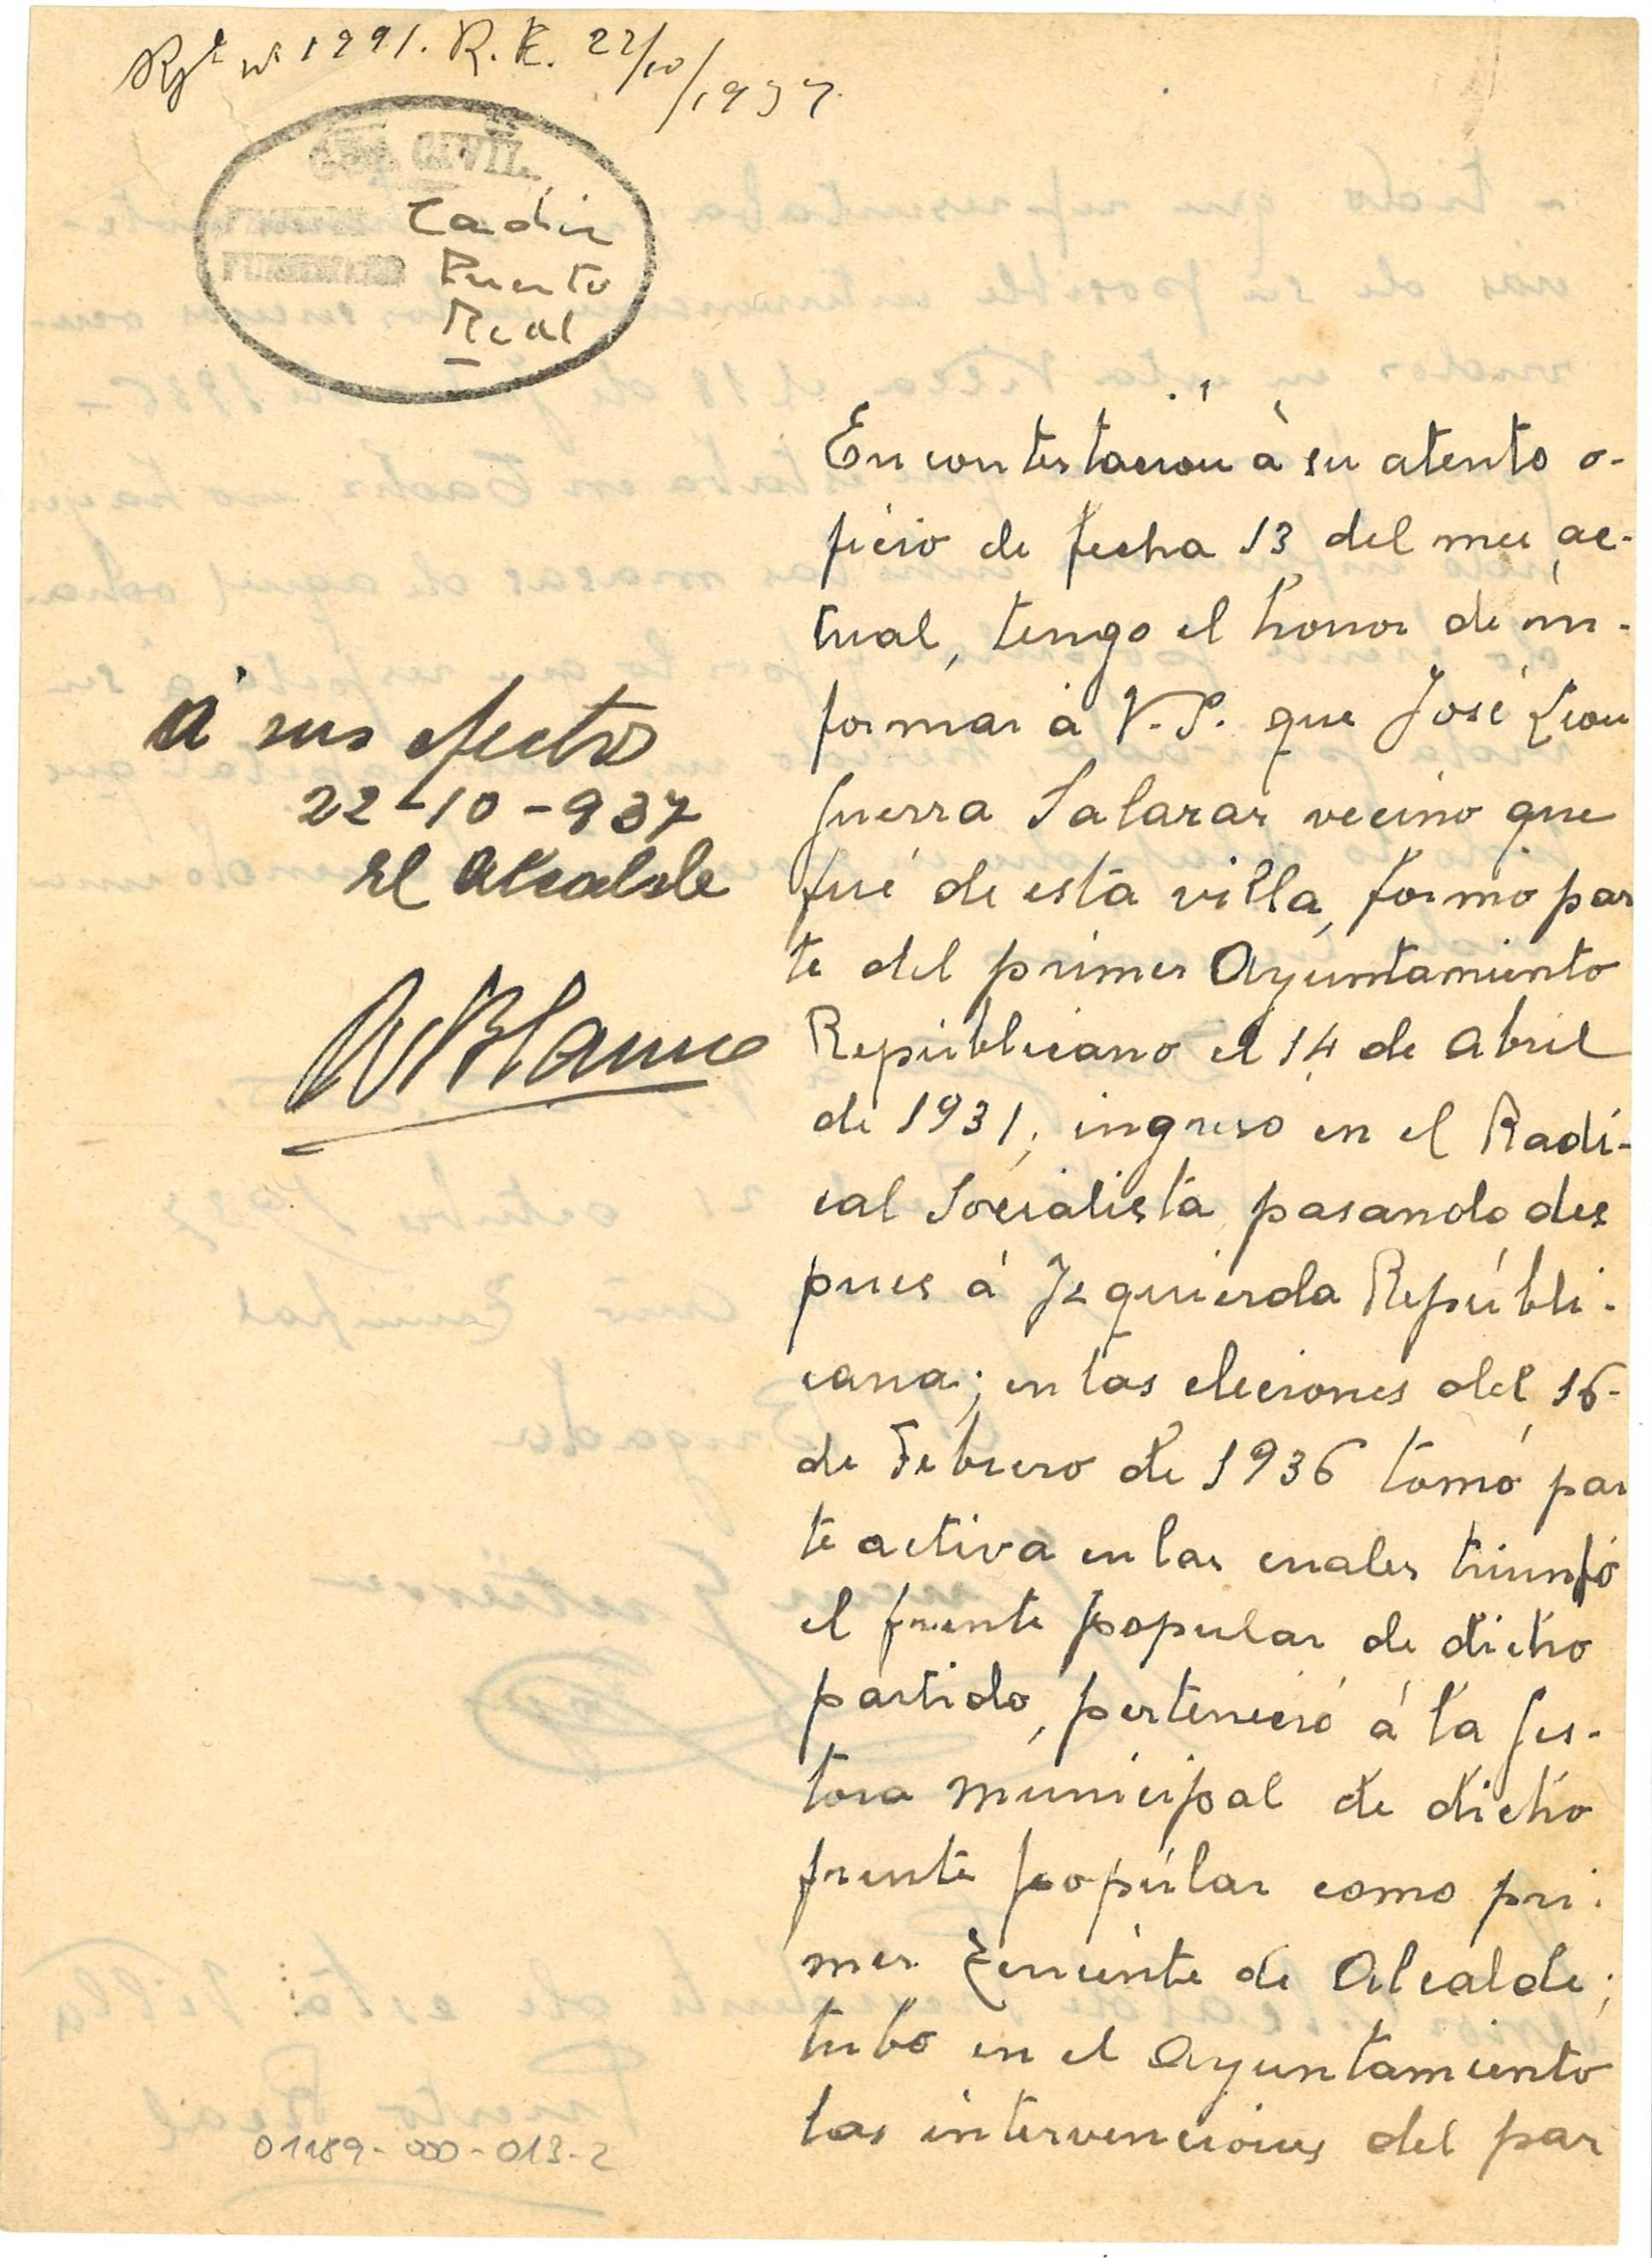 Rgto nº 1991. R. E. 22/10/1937.
CIVIL
Cadiz
Puerto
Real
En contestacion á su atento o-
ficio de fecha 13 del mes ac-
tual, tengo el honor de in-
formar á V.S. que José Leon
Guerra Salazar vecino que
fué de esta villa, formo par
te del primer Ayuntamiento
Republicano el 14 de Abril
de 1931, ingreso en el Radi-
cal Socialista pasando des
pues á Izquierda Republi-
cana; en las elecciones del 16-
de Febrero de 1936 tomó par
te activa en las cuales triunfó
el frente popular de dicho
partido, perteneció á la Ges-
tora Municipal de dicho
frente popular como pri-
mer Teniente de Alcalde;
tubo en el Ayuntamiento
las intervenciones del par
á sus efectos
22-10-937
El Alcalde
Blanco
01189-000-013-2